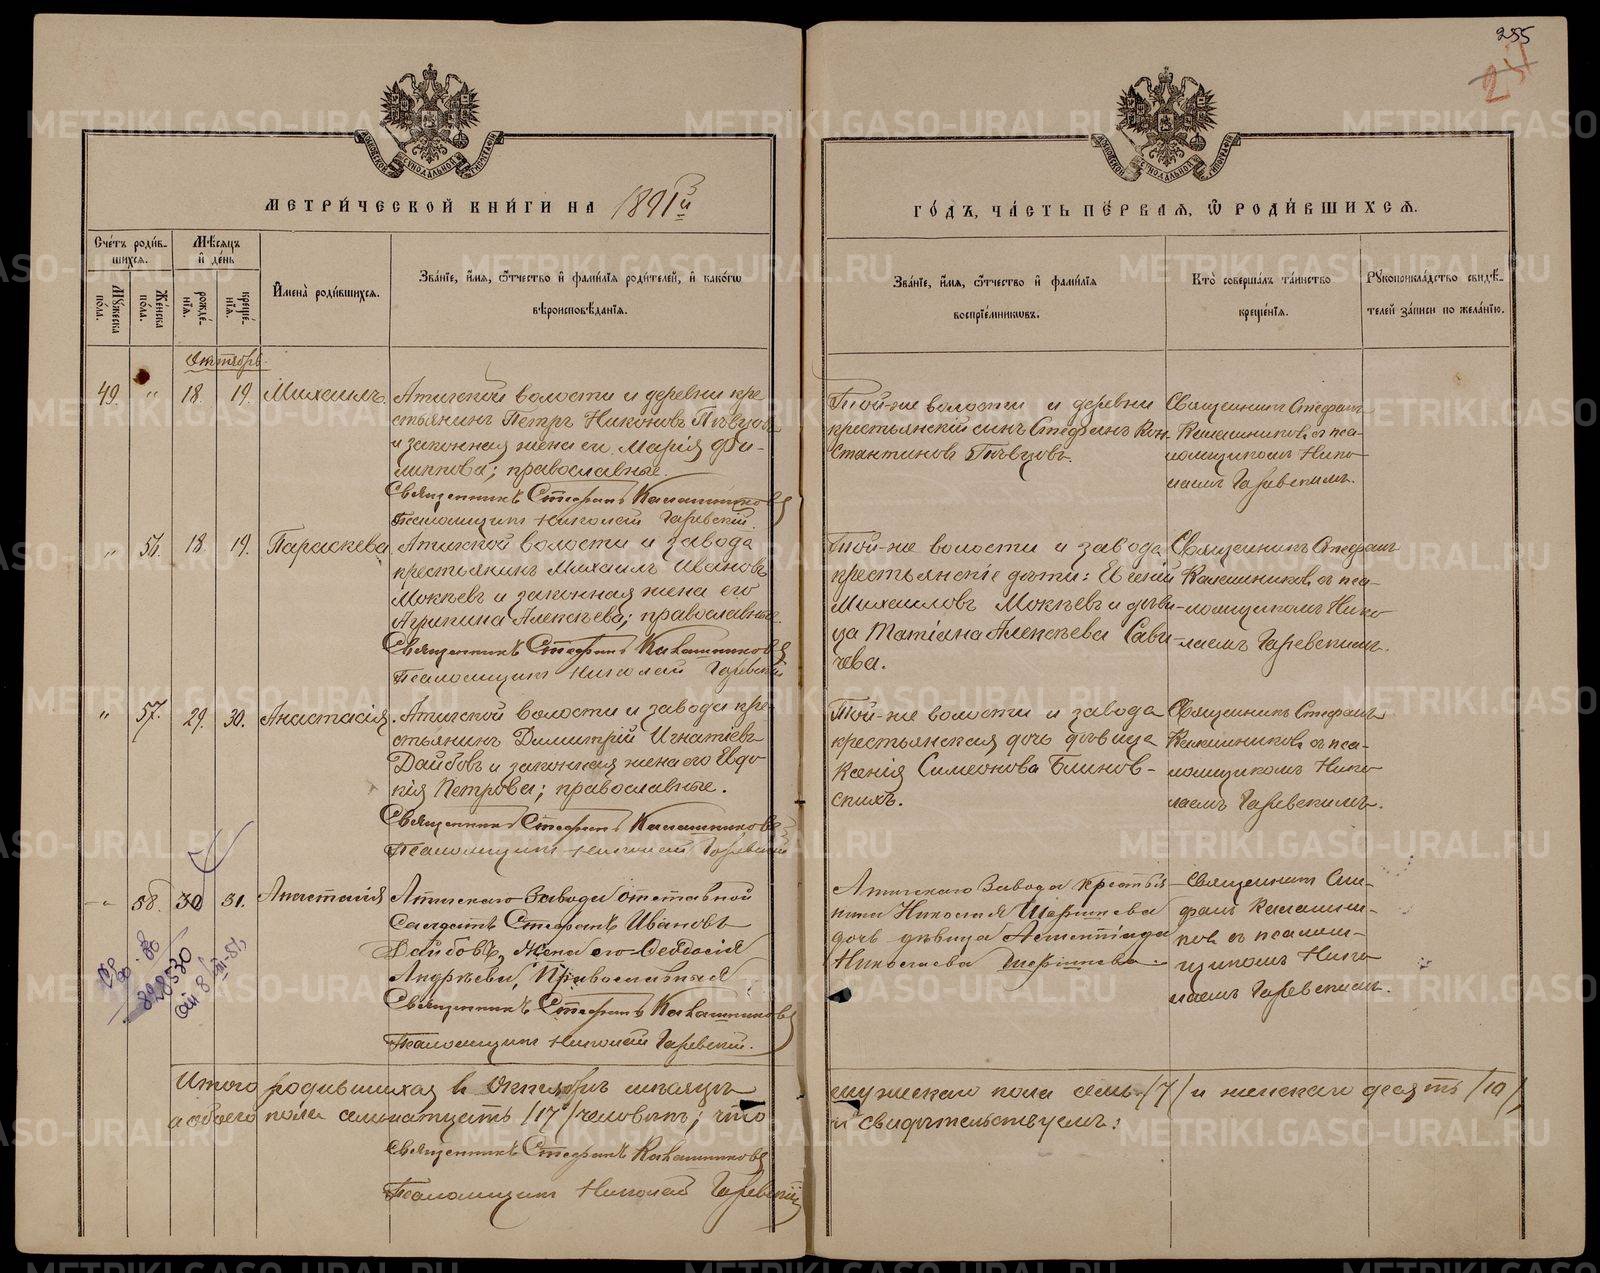 255
251
МЕТРИ́ЧЕСКОЙ КНИ́ГИ НА 1891й
ГО́ДЪ, ЧА́СТЬ ПЕ́РВАЯ, Ѿ РОДИ́ВШИХСЯ.
Сче́тъ роди́в-
шихся.
Мѣ́сяцъ
и҆ де́нь
Му́жеска
по́ла.
Же́нска
по́ла.
рожде́-
нїѧ.
креще́-
нїѧ.
И҆мена̀ роди́вшихся.
Зва́нїе, и҆́мя, ѻ҆́тчество и҆ фами́лїя роди́телей, и҆ како́гѡ
вѣроисповѣ́данїя.
Зва́нїе, и҆́мя, ѻ҆́тчество и҆ фами́лїя
воспрїе́мникѡвъ.
Кто̀ соверша́лъ та́инство
креще́нїя.
Рꙋкоприкла́дство свидѣ́-
телей за́писи по жела́нїю.
Октябрь.
49. " 18. 19. Михаилъ.
Атигской волости и деревни кре
стьянинъ Петръ Никоновъ Пѣвцовъ
и законная жена его Марія Фи-
липпова; православные.
Священникъ Стефанъ Калашниковъ
Псаломщикъ Николай Гаревскій.
Той-же волости и деревни
крестьянскій сынъ Стефанъ Кон-
стантиновъ Пѣвцовъ.
Священникъ Стефанъ
Калашниковъ съ пса-
ломщикомъ Нико
лаемъ Гаревскимъ.
" 56. 18. 19. Параскева
Атигской волости и завода
крестьянинъ Михаилъ Ивановъ
Мокѣевъ и законная жена его
Агрипина Алексѣева; православные.
Священникъ Стефанъ Калашниковъ
Псаломщикъ Николай Гаревскій
Той-же волости и завода
крестьянскіе дѣти: Евгеній
Михаиловъ Мокѣевъ и дѣви-
ца Татіана Алексѣева Сави-
чева.
Священникъ Стефанъ
Калашниковъ съ пса-
ломщикомъ Нико
лаемъ Гаревскимъ.
" 57. 29. 30. Анастасія.
Атигской волости и завода кре-
стьянинъ Димитрій Игнатіевъ
Дайбовъ и законная жена его Евдо
кія Петрова; православные.
Священникъ Стефанъ Калашниковъ
Псаломщикъ Николай Гаревскій
Той-же волости и завода
крестьянская дочь дѣвица
Ксенія Симеонова Блинов-
скихъ.
Священникъ Стефанъ
Калашниковъ съ пса-
ломщикомъ Нико
лаемъ Гаревскимъ.
" 58. 30 31. Анастасія
Атигскаго завода отставной
Солдатъ Стефанъ Ивановъ
Дайбовъ, жена его Ѳеодосія
Андрѣева, Православныя
Священникъ Стефанъ Калашниковъ
Псаломщикъ Николай Гаревскій.
Атигскаго завода крестья
нина Николая Шаршнева
дочь дѣвица
Николаева
Священникъ Сте-
фанъ Калашни-
ковъ съ псалом-
щикомъ Нико
лаемъ Гаревскимъ.
28530
Итого родившихся въ Октябрѣ мѣсяцѣ
обоего пола семнатцать /17/ человѣкъ; что
Священникъ Стефанъ Калашниковъ
Псаломщикъ Николай Гаревскій
мужескаго пола семь /7/ и женскаго десять /10/,
и свидѣтельствуемъ:
METRIKI.GASO-URAL.RU